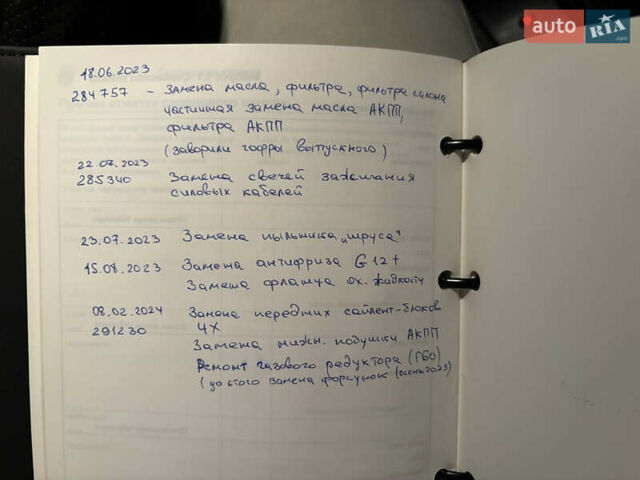 auto RIA.com
18.06.2023
284757 - Замена масла, фильтра, фильтра салона
частичная замена масла АКПП,
фильтра АКПП
(заварили гофры выпускного)
22.07.2023
285340 Замена свечей зажигания
силовых кабелей
23.07.2023 Замена пыльника „шруса"
15.08.2023 Замена антифриза G12+
Замена фланца ох. жидкости
08.02.2024 Замена передних сайлент-блоков
291230 4х
Замена нижн. подушки АКПП
Ремонт газового редуктора (ГБО)
(до этого замена форсунок (осень 2023)